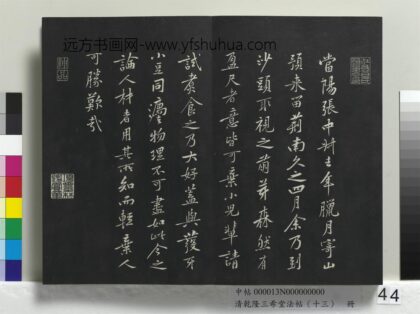 遠方書画网-www.yfshuhua.com
當陽張中叔去年臘月寄山
預來留荊南久之四月余乃到
沙頭取視之萌芽森然有
盈尺者意皆可棄小兒輩請
試煮食之乃大好蓋與發牙
小豆同灋物理不可盡如此今之
論人材者用其所知而輕棄人
可勝歎哉
中帖 000013N000000000
清乾隆三希堂法帖(十三) 冊
44